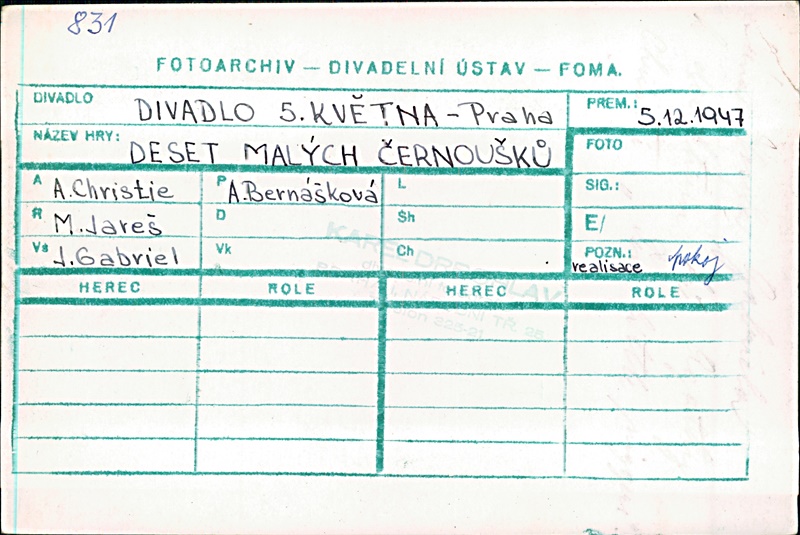 831
FOTOARCHIV — DIVADELNÍ ÚSTAV — FOMA.
DIVADLO DIVADLO 5. KVĚTNA - Praha PREM.: 5.12.1947
NÁZEV HRY: DESET MALÝCH ČERNOUŠKŮ FOTO
A A. Christie P A. Bernášková L SIG.:
R M. Jareš D Sh E/
Vs J. Gabriel Vk Ch POZN.: realisace pokoj
HEREC ROLE HEREC ROLE